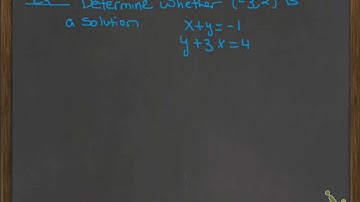 Determine whether (-3,2) is
a solution
x+y=-1
y+3x=4